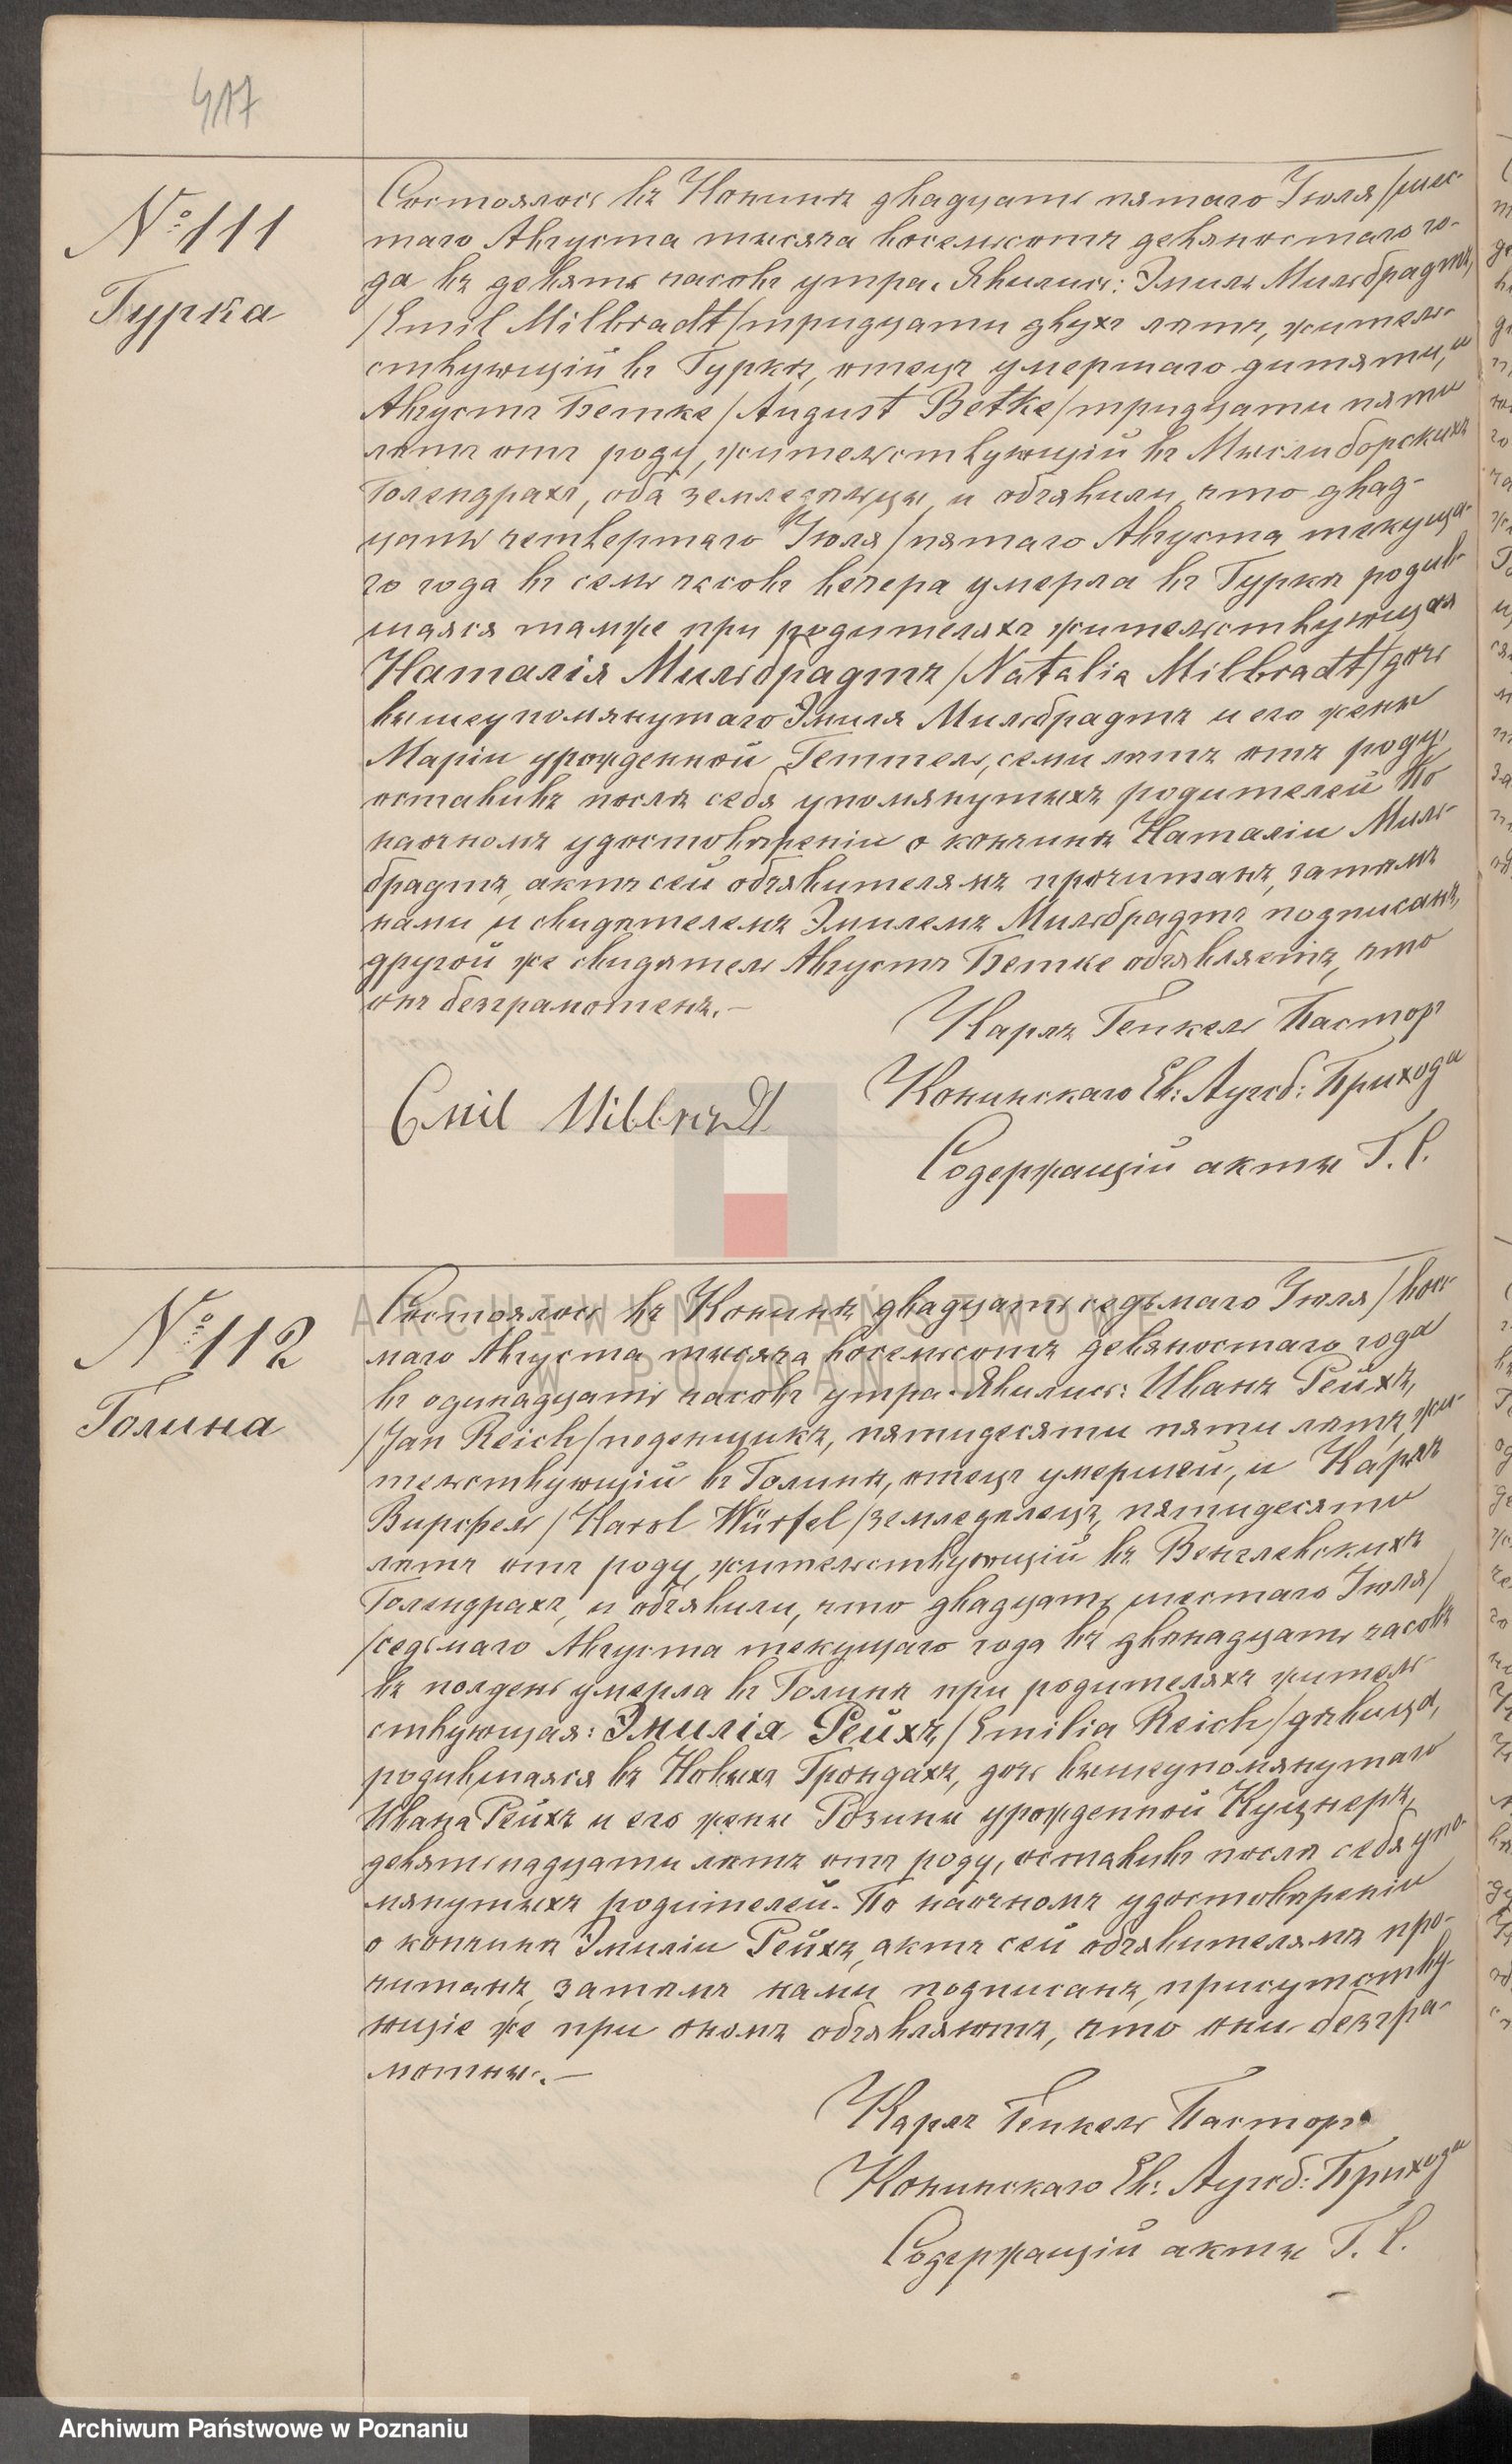 417
№ 111
Гурка
Состоялось въ Конинѣ двадцать пятаго Іюля /шес-
таго Августа тысяча восемьсотъ девяностаго го-
да въ девять часовъ утра. Явились: Эмиль Мильбрадтъ,
/Emil Milbradt/ тридцати двухъ лѣтъ, житель-
ствующій въ Гуркѣ, отецъ умершаго дитяти, и
Августъ Бетке /August Betke/ тридцати пяти
лѣтъ отъ роду, жительствующій въ Мыслиборскихъ
Голендрахъ, оба земледѣльцы, и объявили, что двад-
цать четвертаго Іюля /пятаго Августа текуща-
го года въ семь часовъ вечера умерла въ Гуркѣ родив-
шаяся тамже при родителяхъ жительствующая
Наталія Мильбрадтъ /Natalia Milbradt/ дочь
вышеупомянутаго Эмиля Мильбрадтъ и его жены
Маріи урожденной Геттель, семи лѣтъ отъ роду,
оставивъ послѣ себя упомянутыхъ родителей По
наочномъ удостовѣреніи о кончинѣ Наталіи Миль-
брадтъ, актъ сей объявителямъ прочитанъ, затѣмъ
нами и свидѣтелемъ Эмилемъ Мильбрадтъ подписанъ,
другой же свидѣтель Августъ Бетке объявляетъ, что
онъ безграмотенъ.—
Карлъ Генкель Пасторъ
Конинскаго Ев: Аугсб: Прихода
Emil Milbradt
Содержащій акты Г. С.
№ 112
Голина
Состоялось въ Конинѣ двадцать седьмаго Іюля /вось-
маго Августа тысяча восемьсотъ девяностаго года
въ одинадцать часовъ утра. Явились: Иванъ Рейхъ,
/Jan Reich/ поденщикъ, пятидесяти пяти лѣтъ, жи-
тельствующій въ Голинѣ, отецъ умершей, и Карлъ
Вирсфель /Karol Würfel/ земледѣлецъ, пятидесяти
лѣтъ отъ роду, жительствующій въ Венглевскихъ
Голендрахъ, и объявили, что двадцать шестаго Іюля/
/седьмаго Августа текущаго года въ двѣнадцать часовъ
въ полдень умерла въ Голинѣ при родителяхъ житель-
ствующая: Эмилія Рейхъ, /Emilia Reich/ дѣвица,
родившаяся въ Новыхъ Грондахъ, дочь вышеупомянутаго
Ивана Рейхъ и его жены Розины урожденной Куцнеръ,
девятнадцати лѣтъ отъ роду, оставивъ послѣ себя упо-
мянутыхъ родителей. По наочномъ удостовѣреніи
о кончинѣ Эмиліи Рейхъ, актъ сей объявителямъ про-
читанъ, затѣмъ нами подписанъ, присутству-
ющіе же при ономъ объявляютъ, что они безгра-
мотны.—
Карлъ Генкель Пасторъ
Конинскаго Ев: Аугсб: Прихода
Содержащій акты Г. С.
ARCHIWUM PAŃSTWOWE
W POZNANIU
Archiwum Państwowe w Poznaniu